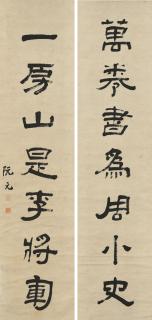 萬卷書為周小史
一房山是李將軍
阮元